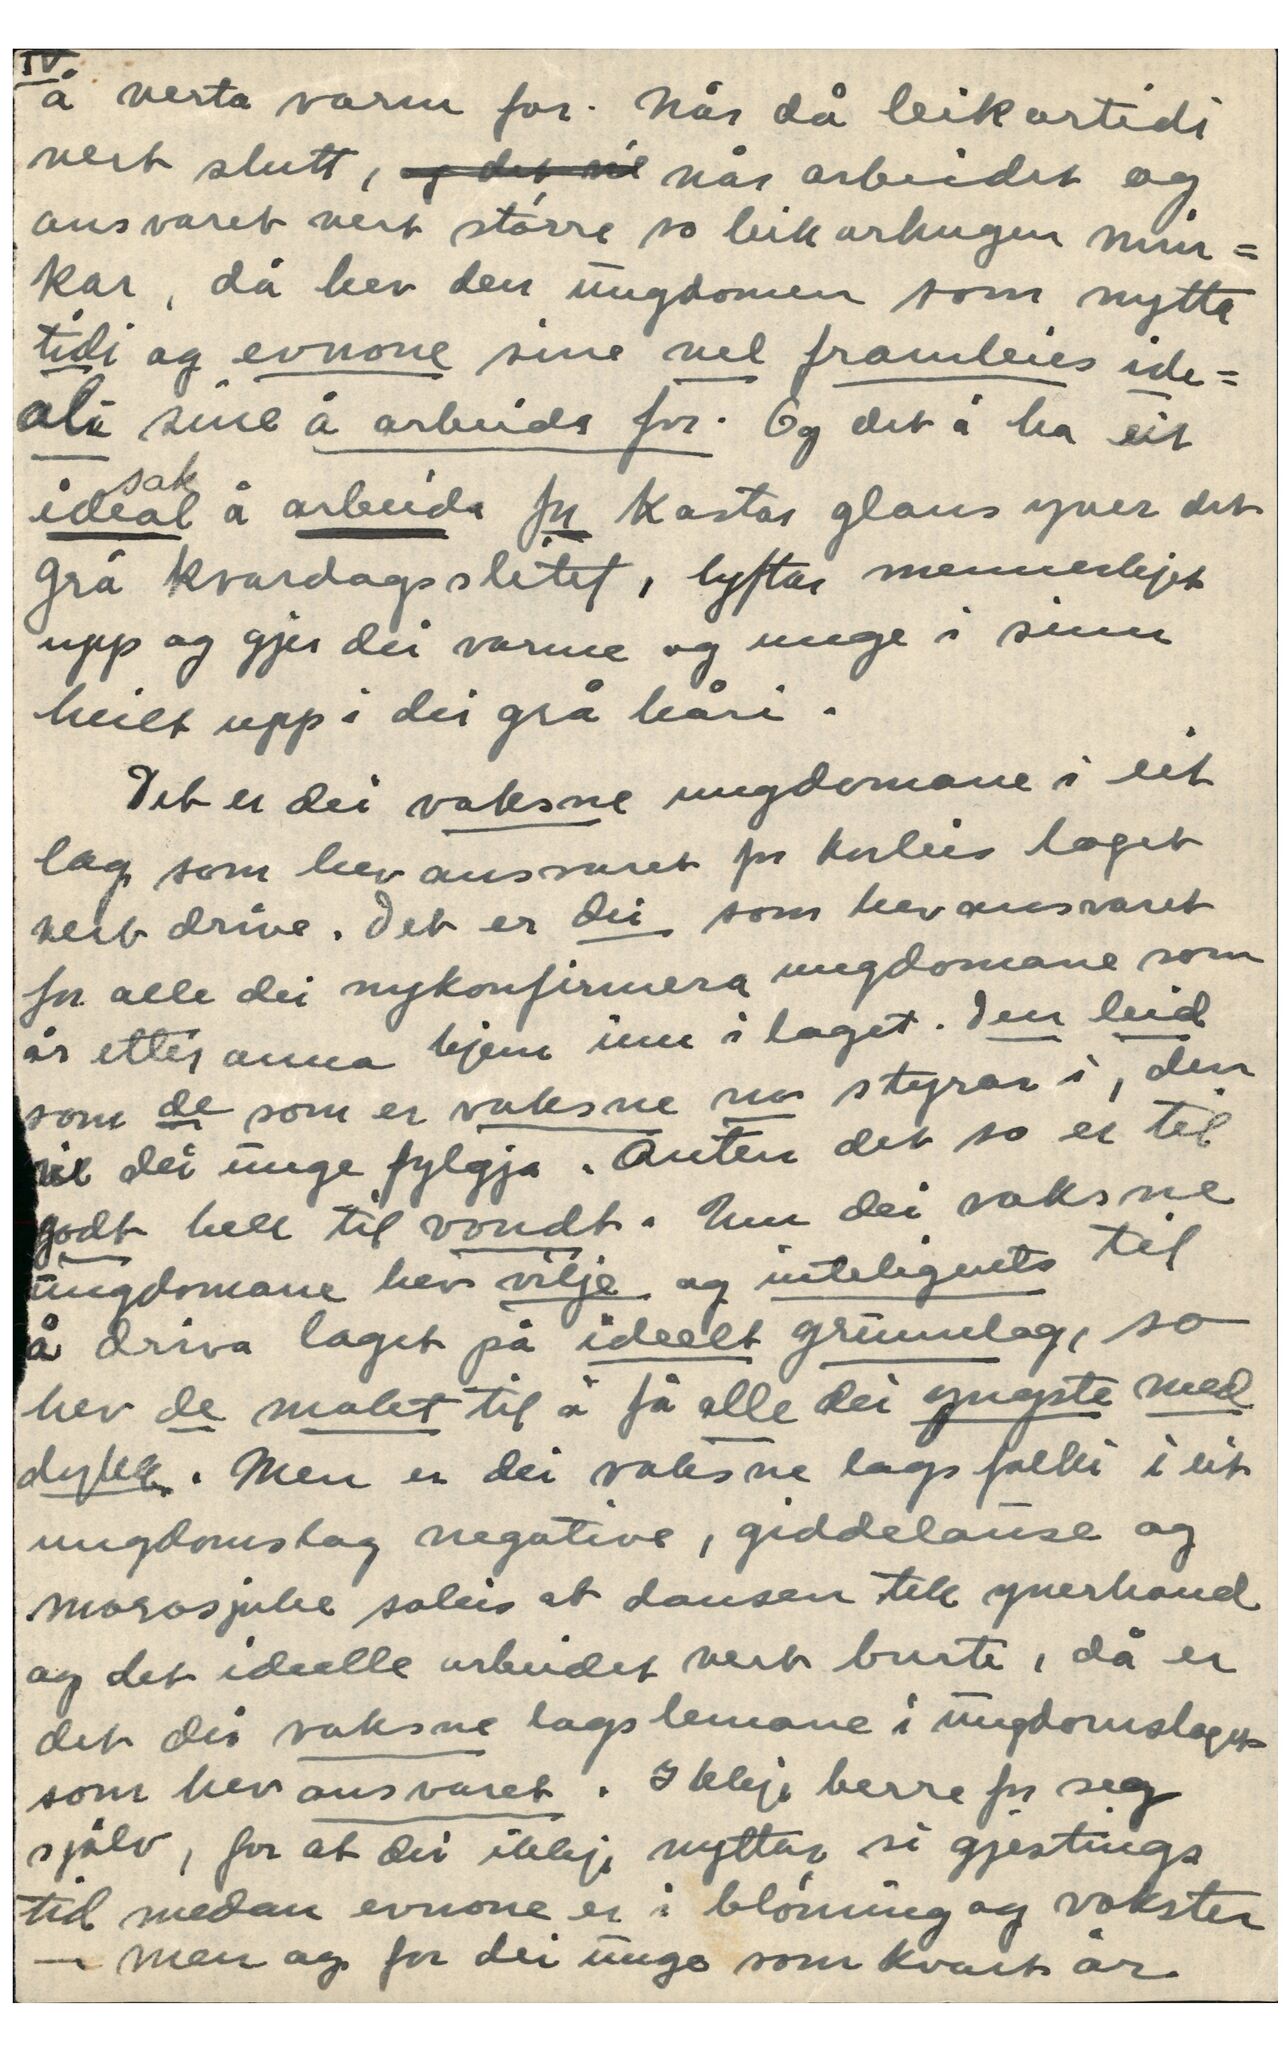 IV
å verta varm for. Når då leikartidi
vert slutt, og det vil når arbeidet og
ansvaret vert større so leikarhugen min=
kar, då hev den ungdomen som nytta
tidi og evnone sine vel framleies ide=
ali sine å arbeida for. Og det å ha eit
sak
ideal å arbeida for kastar glans yver det
grå kvardagsslitet, lyftar menneskjet
upp og gjer dei varme og unge i sinn
heilt upp i dei grå håri.
Det er dei vaksne ungdomane i eit
lag som hev ansvaret for korleis laget
vert drive. Det er dei som hev ansvaret
for alle dei nykonfirmera ungdomane som
år etter anna kjem inn i laget. Den leid
som de som er vaksne no styrar i, den
vil dei unge fylgja. Anten det so er til
godt hell til vondt. Um dei vaksne
ungdomane hev vilje og inteligents til
å driva laget på ideelt grunnlag, so
hev de makt til å få alle dei yngste med
dykk. Men er dei vaksne lagsfolki i eit
ungdomslag negative, giddelause og
morosjuke soleis at dansen tek yverhand
og det ideelle arbeidet vert burte, då er
det dei vaksne lagslemane i ungdomslaget
som hev ansvaret. Ikkje berre for seg
sjølv, for at dei ikkje nyttar si gjestings
tid medan evnone er i bløming og vokster
– men og for dei unge som kvart år